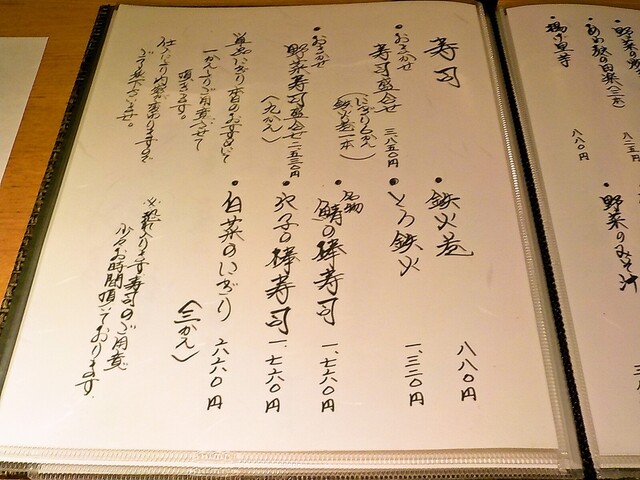 寿司
・おまかせ
寿司盛合せ 三八五〇円
(にぎり七かん
鉄火巻一本)
・おまかせ
野菜寿司盛合せ 二五三〇円
(九かん)
単品にぎり本日のおすすめにて
一かんよりご用意させて
頂きます。
仕入により内容が変わりますので
ご了承下さいませ。
・鉄火巻 八八〇円
・とろ鉄火 一、三二〇円
・名物
鯖の棒寿司 一、七六〇円
・穴子の棒寿司 一、七六〇円
・白菜のにぎり 六六〇円
(三かん)
※恐れ入りますが寿司のご用意
少々お時間頂いております。
・野菜の
八二五円
八八〇円
・揚げ里芋
・野菜のみそ汁